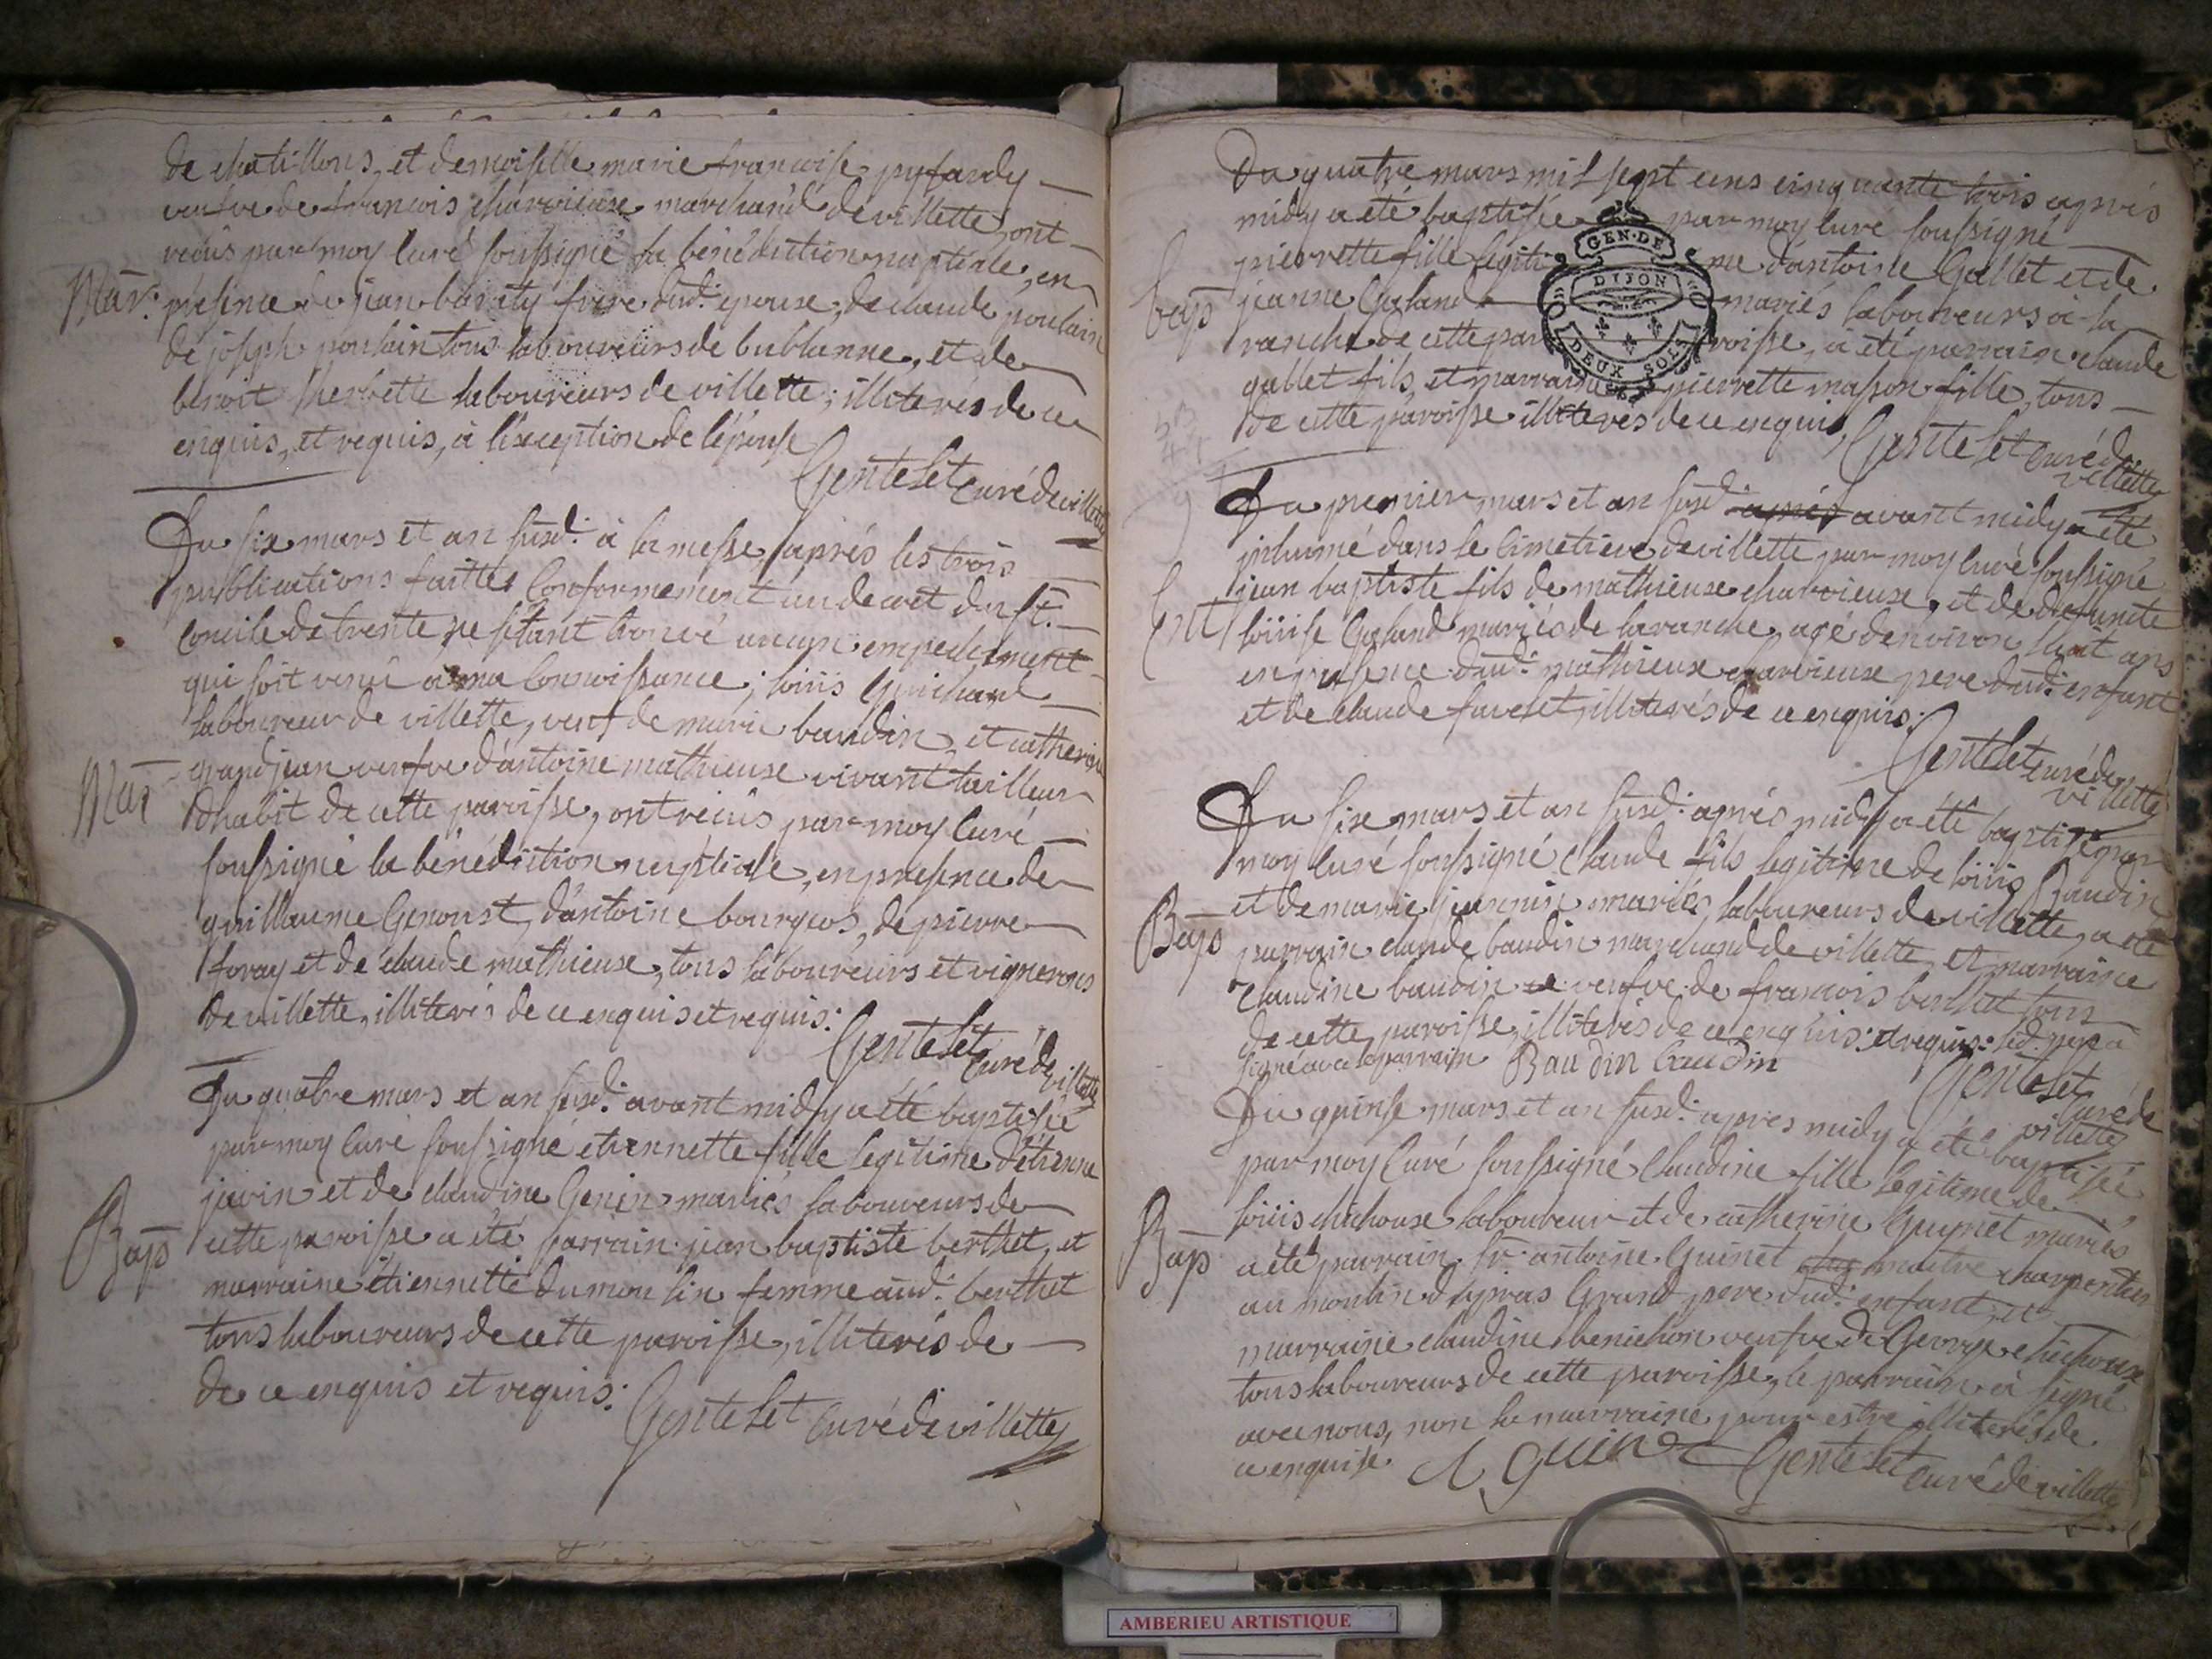 de chatillons, et demoiselle marie francoise pyfardy
veufve de francois charvieuse marchand de villette, ont
recûs par moy curé soussigné la bénédiction nuptiale, en
Mar: présence de jean baraty frere dud: epouse, de claude poulain
de joseph poulain tous laboureurs de bublanne, et de
benoit herbette laboureurs de villette, illiterés de ce
enquis, et requis, à l'exception de l'épouse
Gentelet curé de villette
Du six mars et an susd: à la messe, après les trois
publications faittes conformement au decret du st:
concile de trente ne s'étant trouvé aucun empechement
qui soit venû à ma connoissance; loüis Guichard
laboureur de villette, veuf de marie baudin, et catherine
Mar grandjean veufve d'antoine mathieuse vivant tailleur
d'habit de cette paroisse, ont recûs par moy curé
soussigné la bénédiction nuptiale, en presence de
guillaume Genoust, d'antoine bourgeos, de pierre
foray et de claude mathieuse, tous laboureurs et vignerons
de villette, illiterés de ce enquis et requis:
Gentelet curé de villette
Du quatre mars et an susd: avant midy a été baptisée
par moy curé soussigné etiennette fille legitime d'étienne
juvin et de claudine Genin mariés laboureurs de
Bap cette paroisse a été parrain jean baptiste berthet, et
marraine étiennette dumoulin femme aud: berthet
tous laboureurs de cette paroisse, illiterés de
de ce enquis et requis:
Gentelet curé de villette
Du quatre mars mil sept cens cinquante trois après
midy a été baptisée par moy curé soussigné
pierrette fille legitime d'antoine Gallet et de
bap jeanne Galand mariés laboureurs à la
ranche de cette paroisse, a été parrain claude
gallet fils, et marraine pierrette masson fille, tous
de cette paroisse illiterés de ce enquis
GEN·DE
DIJON
DEUX SOLS
Gentelet curé de
villette
Du premier mars et an susd: après avant midy a été
inhumé dans le cimetiere de villette par moy curé soussigné
jean baptiste fils de mathieuse charvieuse, et de defuncte
Ent loüise Galand mariés de laranche, agé denviron huit ans
en presence dud: mathieuse charvieuse pere dud: enfant
et de claude favelet, illiterés de ce enquis:
Gentelet curé de
villette
Du six mars et an susd: après midy a été baptisé par
moy curé soussigné claude fils legitime de loüis Baudin
et de marie jeannin mariés, laboureurs de villette, a été
Bap parrain claude baudin marchand de villette, et marraine
claudine baudin veufve de francois berthet tous
de cette paroisse, illiterés de ce enquis: et requis:
signé avec le parrain Baudin baudin
Gentelet
curé de
villette
Du quinse mars et an susd: apres midy a été baptisée
par moy curé soussigné claudine fille legitime de
loüis chichouse laboureur et de catherine Guynet mariés
Bap a été parrain sr. antoine Guinet maitre charpentier
au moulin dupras Grand pere dud: enfant, et
marraine claudine benichon veufve de George chichouse
tous laboureurs de cette paroisse, le parrain a signé
avec nous, non la marraine pour estre illiterés de
ce enquise A guinet Gentelet
curé de villette
AMBERIEU ARTISTIQUE